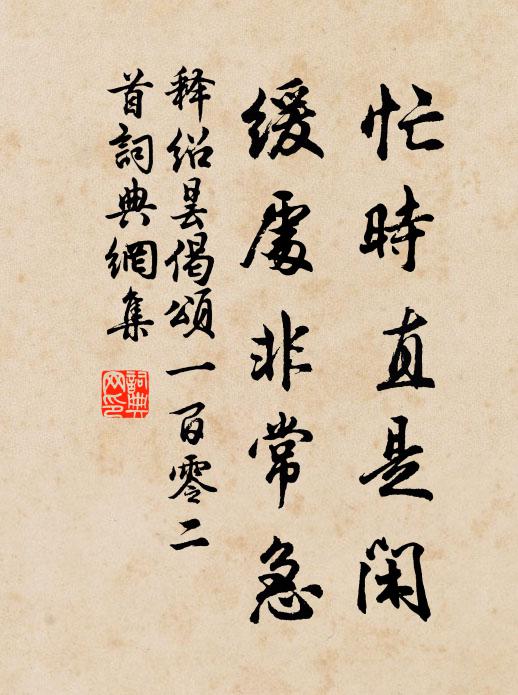 忙時直是閑
緩處非常急
释绍昙偈頌一百零二
首詞典網集
詞典
网印